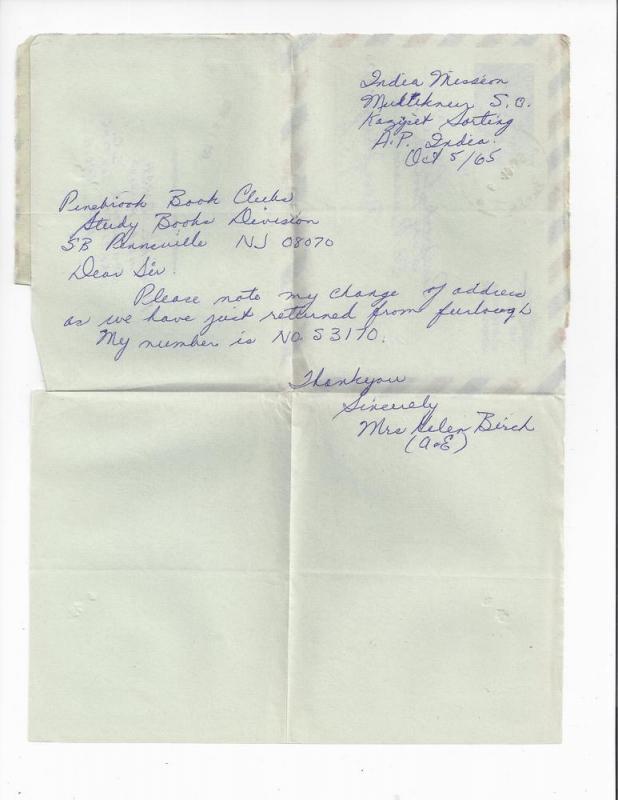 India Mission
Multiknur S.O.
Kazipet Sorting
A.P. India.
Oct 5/65
Pinebrook Book Clubs
Study Books Division
SB Pennsville NJ 08070
Dear Sir.
Please note my change of address
as we have just returned from furlough
My number is No. S3170.
Thankyou
Sincerely
Mrs Helen Birch
(A+E)